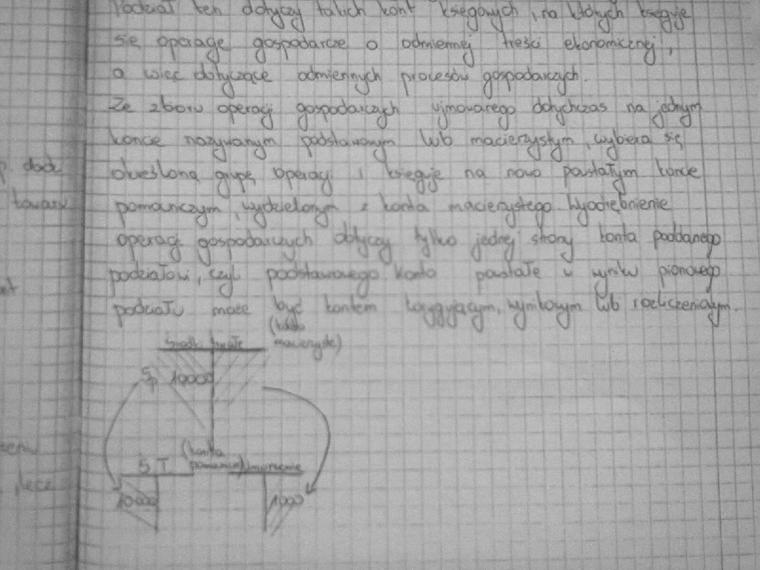 Podział ten dotyczy takich kont księgowych, na których księguje
się operacje gospodarcze o odmiennej treści ekonomicznej,
a więc dotyczące odmiennych procesów gospodarczych.
Ze zboru operacji gospodarczych ujmowanego dotychczas na jednym
koncie nazywanym podstawowym lub macierzystym, wybiera się
określoną grupę operacji i księguje na nowo powstałym koncie
pomocniczym, wydzielonym z konta macierzystego. Wyodrębnienie
operacji gospodarczych dotyczy tylko jednej strony konta poddanego
podziałowi, czyli podstawowego. Konto powstałe w wyniku pionowego
podziału może być kontem korygującym, wynikowym lub rozliczeniowym.
(konto
Środki trwałe macierzyste)
Sp 10000
(konta
Ś T pomocnicze) Umorzenie
10000 1000
towary